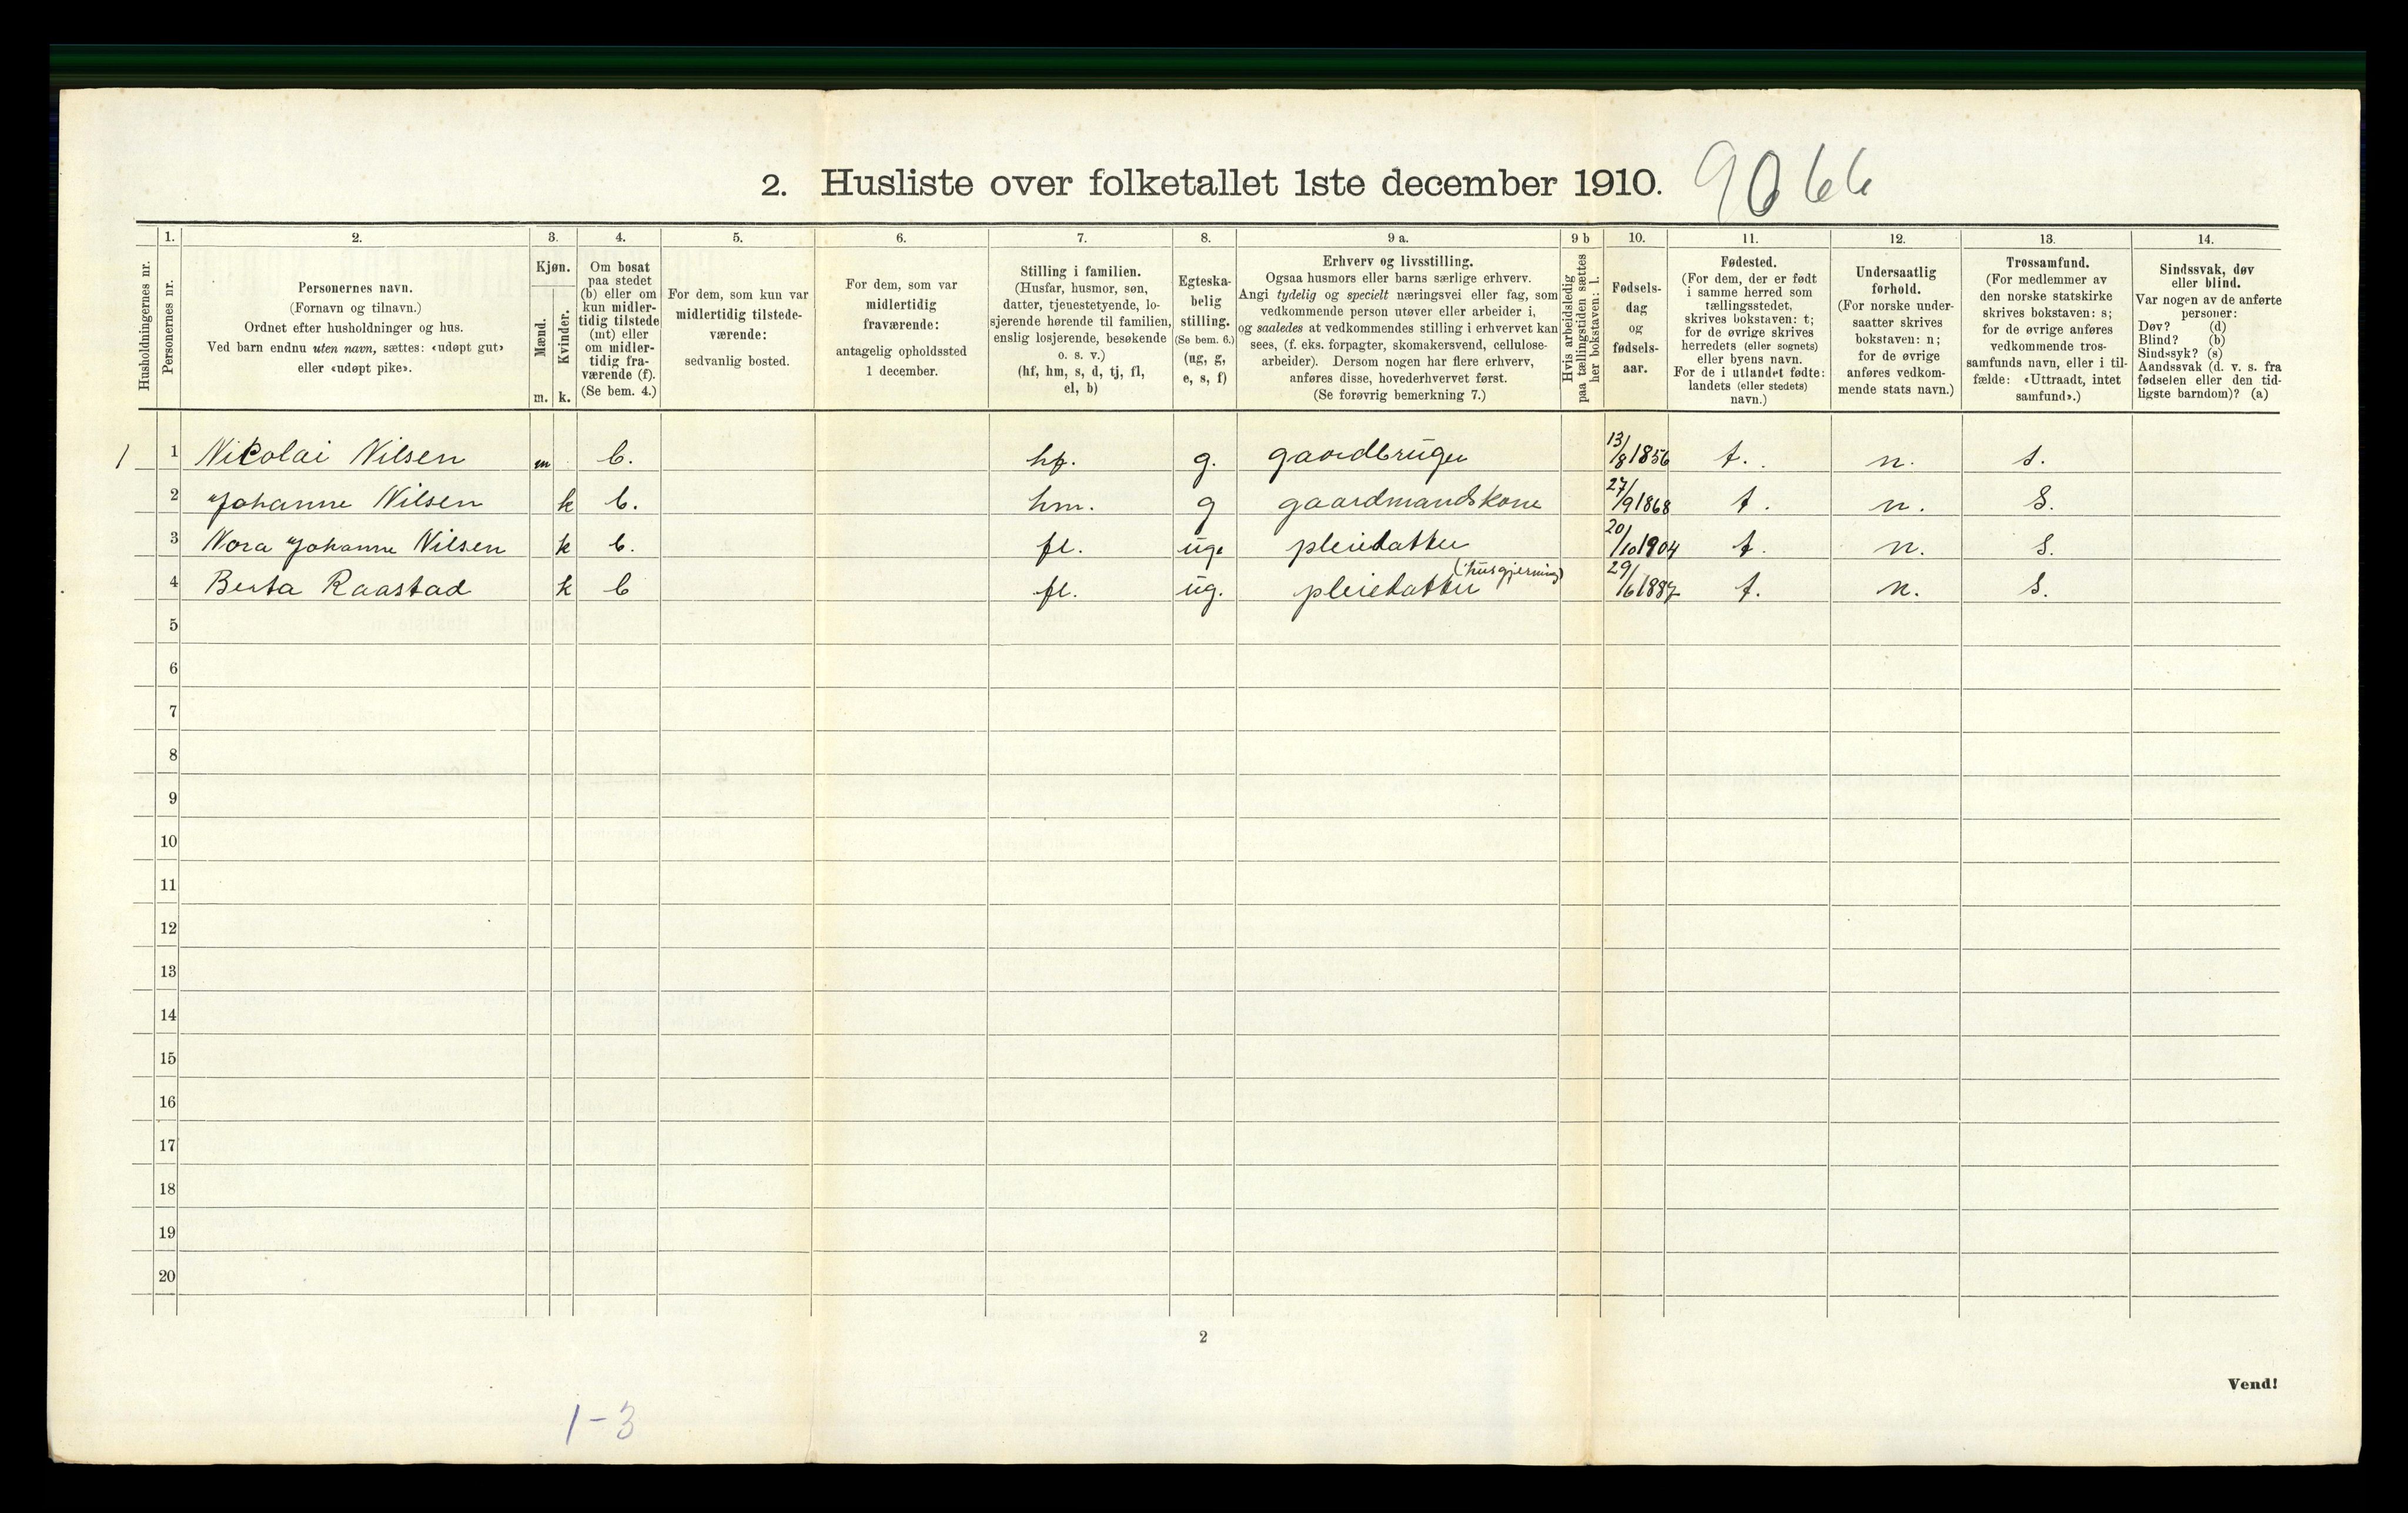 2. Husliste over folketallet 1ste december 1910. 9066
Husholdningernes nr.
1.
Personernes nr.
2.
Personernes navn.
(Fornavn og tilnavn.)
Ordnet efter husholdninger og hus.
Ved barn endnu uten navn, sættes: «udøpt gut»
eller «udøpt pike».
3.
Kjøn.
Mænd.
Kvinder.
m. k.
4.
Om bosat
paa stedet
(b) eller om
kun midler-
tidig tilstede
(mt) eller
om midler-
tidig fra-
værende (f).
(Se bem. 4.)
5.
For dem, som kun var
midlertidig tilstede-
værende:
sedvanlig bosted.
6.
For dem, som var
midlertidig
fraværende:
antagelig opholdssted
1 december.
7.
Stilling i familien.
(Husfar, husmor, søn,
datter, tjenestetyende, lo-
sjerende hørende til familien,
enslig losjerende, besøkende
o. s. v.)
(hf, hm, s, d, tj, fl,
el, b)
8.
Egteska-
belig
stilling.
(Se bem. 6.)
(ug, g,
e, s, f)
9 a.
Erhverv og livsstilling.
Ogsaa husmors eller barns særlige erhverv.
Angi tydelig og specielt næringsvei eller fag, som
vedkommende person utøver eller arbeider i,
og saaledes at vedkommendes stilling i erhvervet kan
sees, (f. eks. forpagter, skomakersvend, cellulose-
arbeider). Dersom nogen har flere erhverv,
anføres disse, hovederhvervet først.
(Se forøvrig bemerkning 7.)
9 b
Hvis arbeidsledig
paa tællingstiden sættes
her bokstaven: l.
10.
Fødsels-
dag
og
fødsels-
aar.
11.
Fødested.
(For dem, der er født
i samme herred som
tællingsstedet,
skrives bokstaven: t;
for de øvrige skrives
herredets (eller sognets)
eller byens navn.
For de i utlandet fødte:
landets (eller stedets)
navn.)
12.
Undersaatlig
forhold.
(For norske under-
saatter skrives
bokstaven: n;
for de øvrige
anføres vedkom-
mende stats navn.)
13.
Trossamfund.
(For medlemmer av
den norske statskirke
skrives bokstaven: s;
for de øvrige anføres
vedkommende tros-
samfunds navn, eller i til-
fælde: «Uttraadt, intet
samfund».)
14.
Sindssvak, døv
eller blind.
Var nogen av de anførte
personer:
Døv? (d)
Blind? (b)
Sindssyk? (s)
Aandssvak (d. v. s. fra
fødselen eller den tid-
ligste barndom)? (a)
1 1 Nicolai Nilsen m b. hf. g. gaardbruger 13/8 1856 t. n. s.
2 Johanne Nilsen k b. hm. g gaardmandskone 27/9 1868 t. n. s.
3 Nora Johanne Nilsen k b. fl. ug. pleiedatter 20/10 1904 t. n. s.
4 Berta Raastad k b fl. ug. pleiedatter (husgjerning) 29/6 1887 t. n. s.
5
6
7
8
9
10
11
12
13
14
15
16
17
18
19
20
2
Vend!
1-3